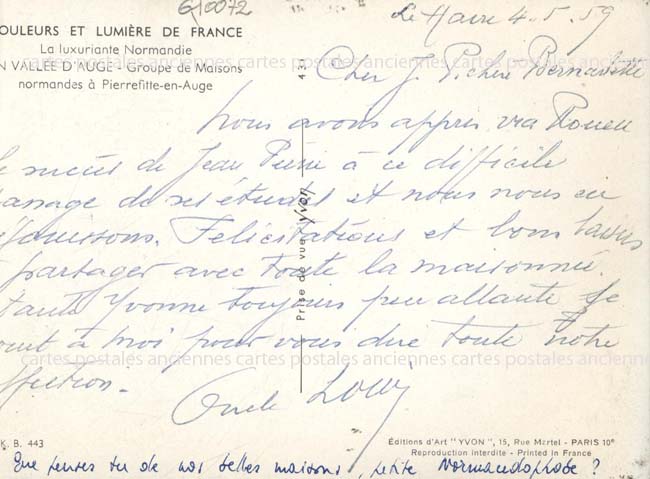 6/0072
OULEURS ET LUMIÈRE DE FRANCE
La luxuriante Normandie
N VALLÉE D'AUGE - Groupe de Maisons
normandes à Pierrefitte-en-Auge
Le Havre 4.5.59
Cher J. Bernadette
Nous avons appris via Rouen
le succès de Jean Pierre à ce difficile
passage de ses études et nous nous en
réjouissons. Félicitations et bons baisers
à partager avec toute la maisonnée.
tante Yvonne toujours peu allante se
joint à moi pour vous dire toute notre
affection.
Oncle Louis
431 Prise de vue Yvon
cartes postales anciennes cartes postales anciennes cartes postales anciennes
cartes postales anciennes cartes postales anciennes cartes postales anciennes
K. B. 443
Éditions d'Art "YVON", 15, Rue Martel - PARIS 10e
Reproduction interdite - Printed in France
Que penses tu de nos belles maisons, petite Normandophobe ?